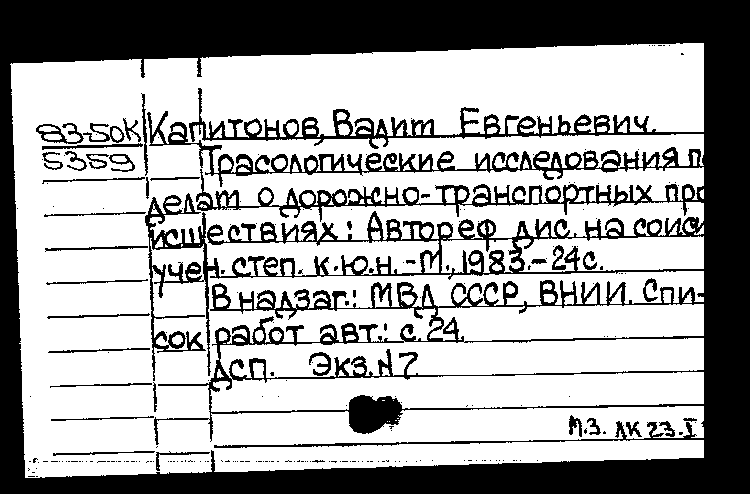 83-50К Капитонов, Вадит Евгеньевич.
5359 Трасологические исследования по
делат о дорожно-транспортных про
исшествиях: Автореф дис. на соиск
учен. степ. к.ю.н. -М., 1983.-24с.
В надзаг.: МВД СССР, ВНИИ. Спи-
сок работ авт.: с.24.
ДСП. Экз.N7
М.З. ЛК 23.I